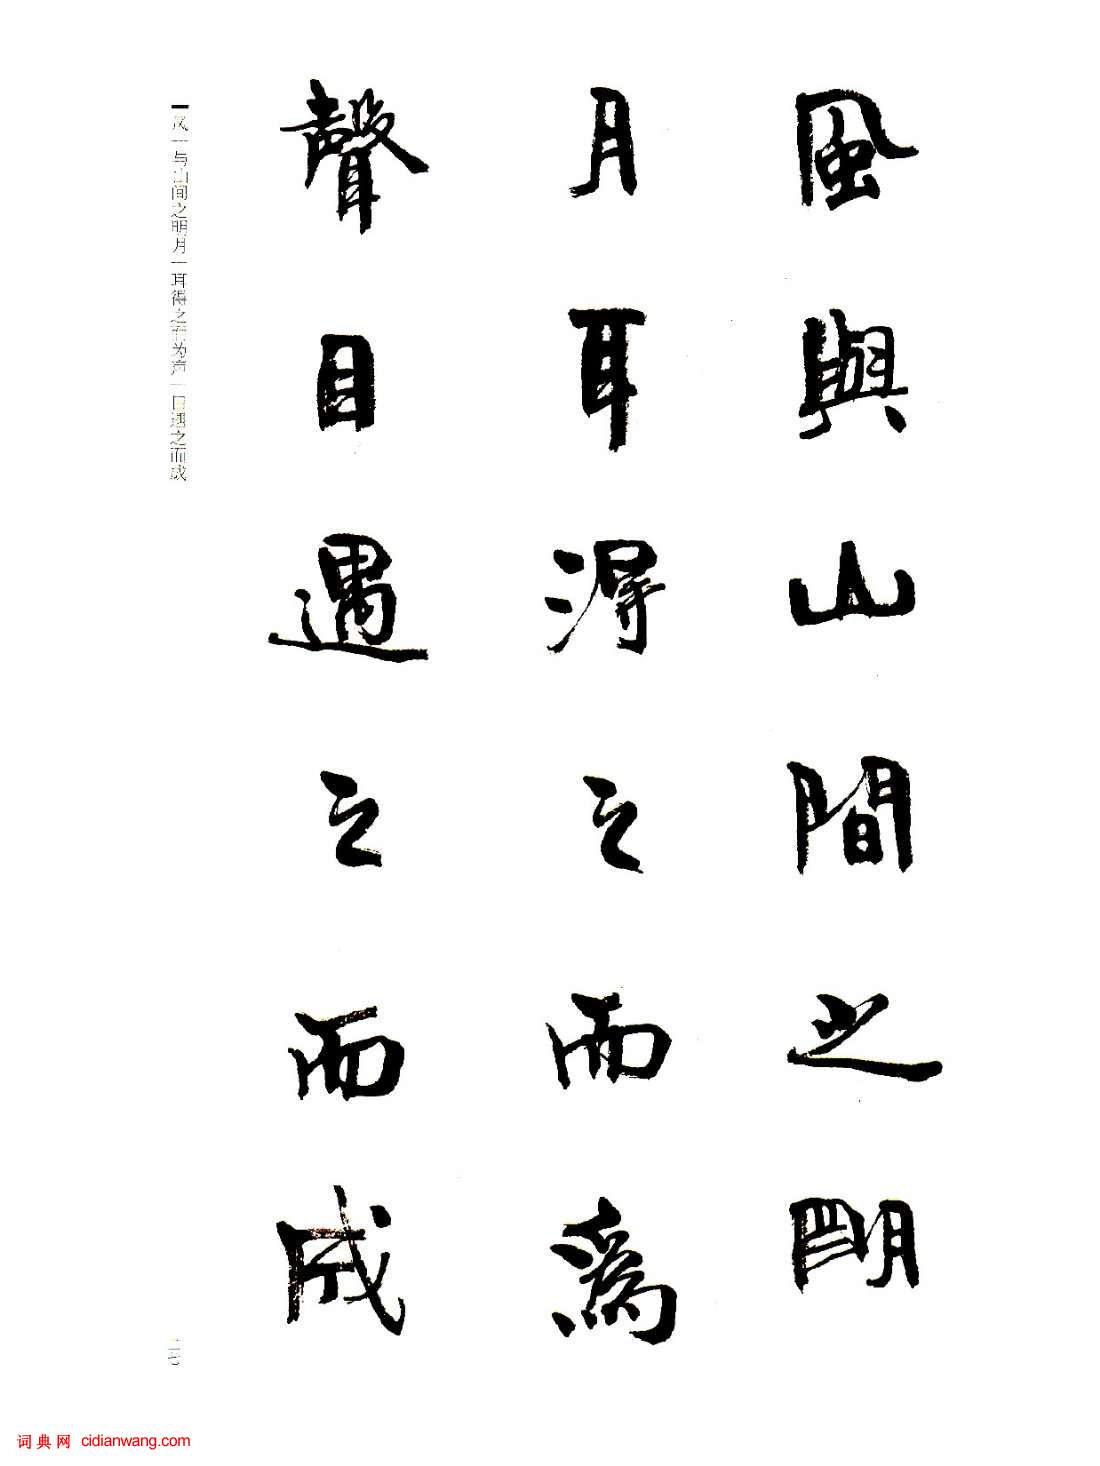 風與山間之明
月耳得之而為
聲目遇之而成
风一与山间之明月一耳得之而为声一目遇之而成
二七
词典网 cidianwang.com